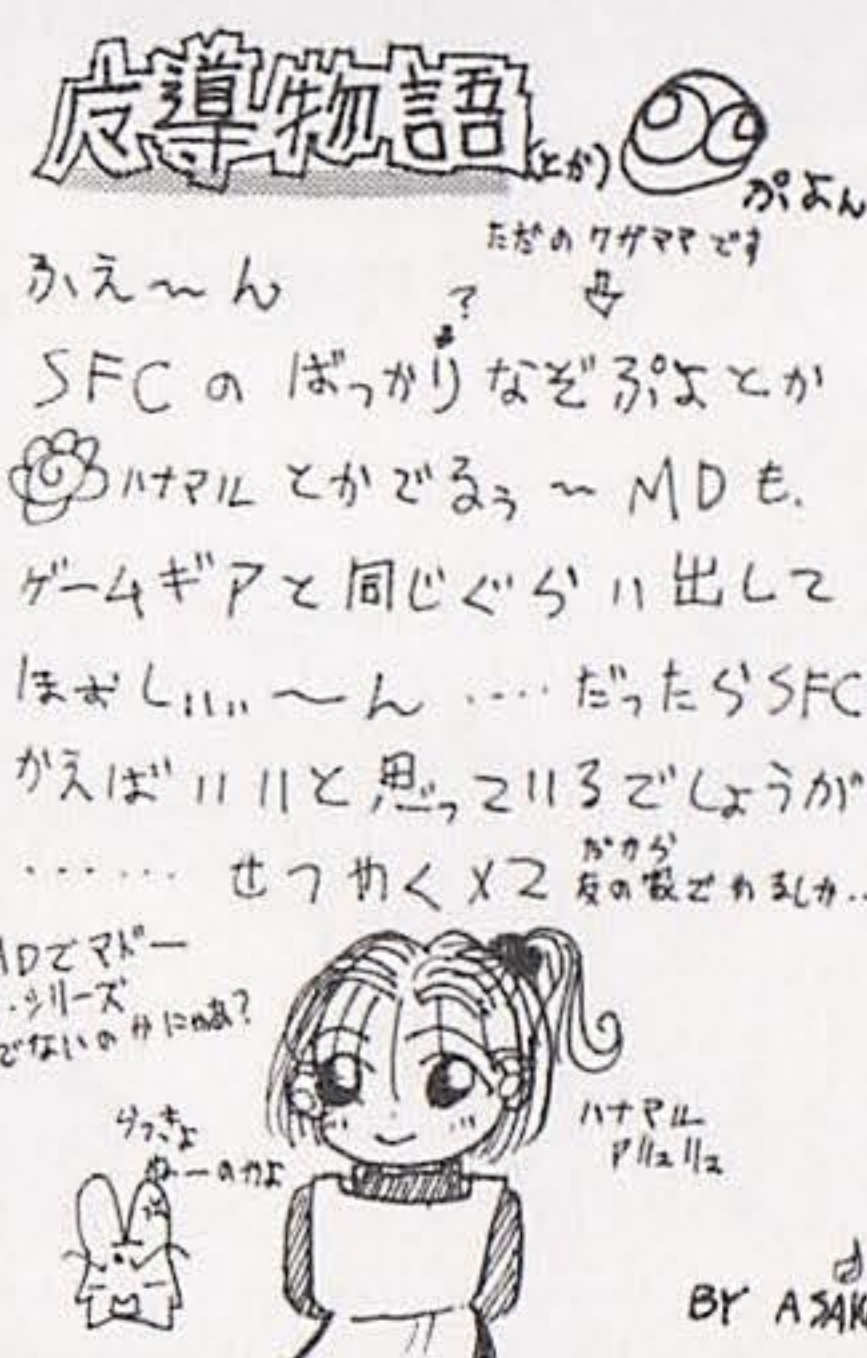 魔導物語(とか)
ぷよん
ただのワガママです
ふえ～ん
?
SFCのばっかりなぞぷよとか
ハナマルとかでるぅ～MDも、
ゲームギアと同じぐらい出して
ほおしいぃ～ん ‥‥だったらSFC
かえばいいと思っているでしょうが
‥‥‥せつやくメて
だから
MDでマドー
・シリーズ
でないのかにゃあ?
らっきょ
ねーのかよ
ハナマル
アリュリュ
BY ASAK